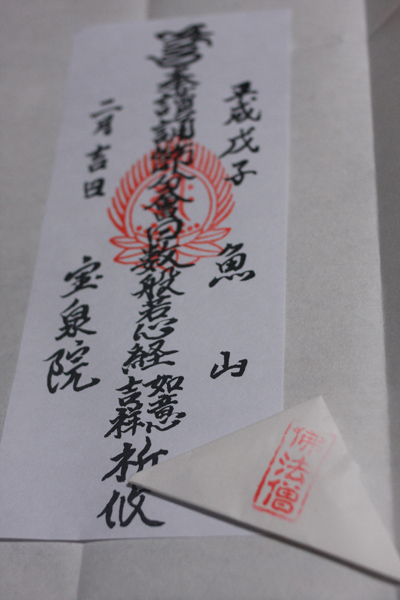 平成戊子
魚山
数般若心経
如意
吉祥
祈攸
二月吉日
宝泉院
佛法僧